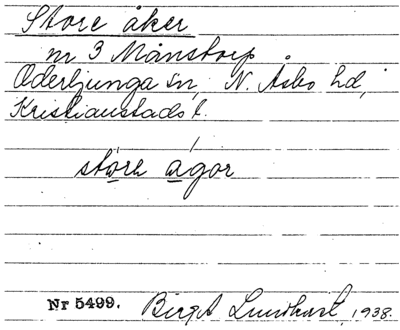 Store åker
nr 3 Månstorp
Oderljunga sn, N. Åsbo hd,
Kristianstads l.
störe ågor
Nr 5499. Birgit Lundkvist, 1938.